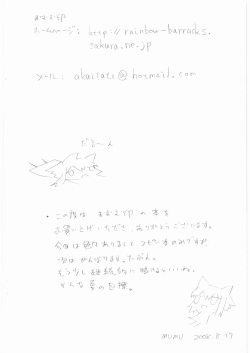 ホームページ: http://rainbow-barracks.
sakura.ne.jp
メール: akaitate@hotmail.com
だる〜ん
・この度は まむる印 の本を
お買い上げいただき、ありがとうございます。
今回は色々ありまして コピー本のみですが
次は がんばります。たぶん。
もう少し 継続的に 描けるといいな。
そんな 夏の
MUMU 2008.8.17